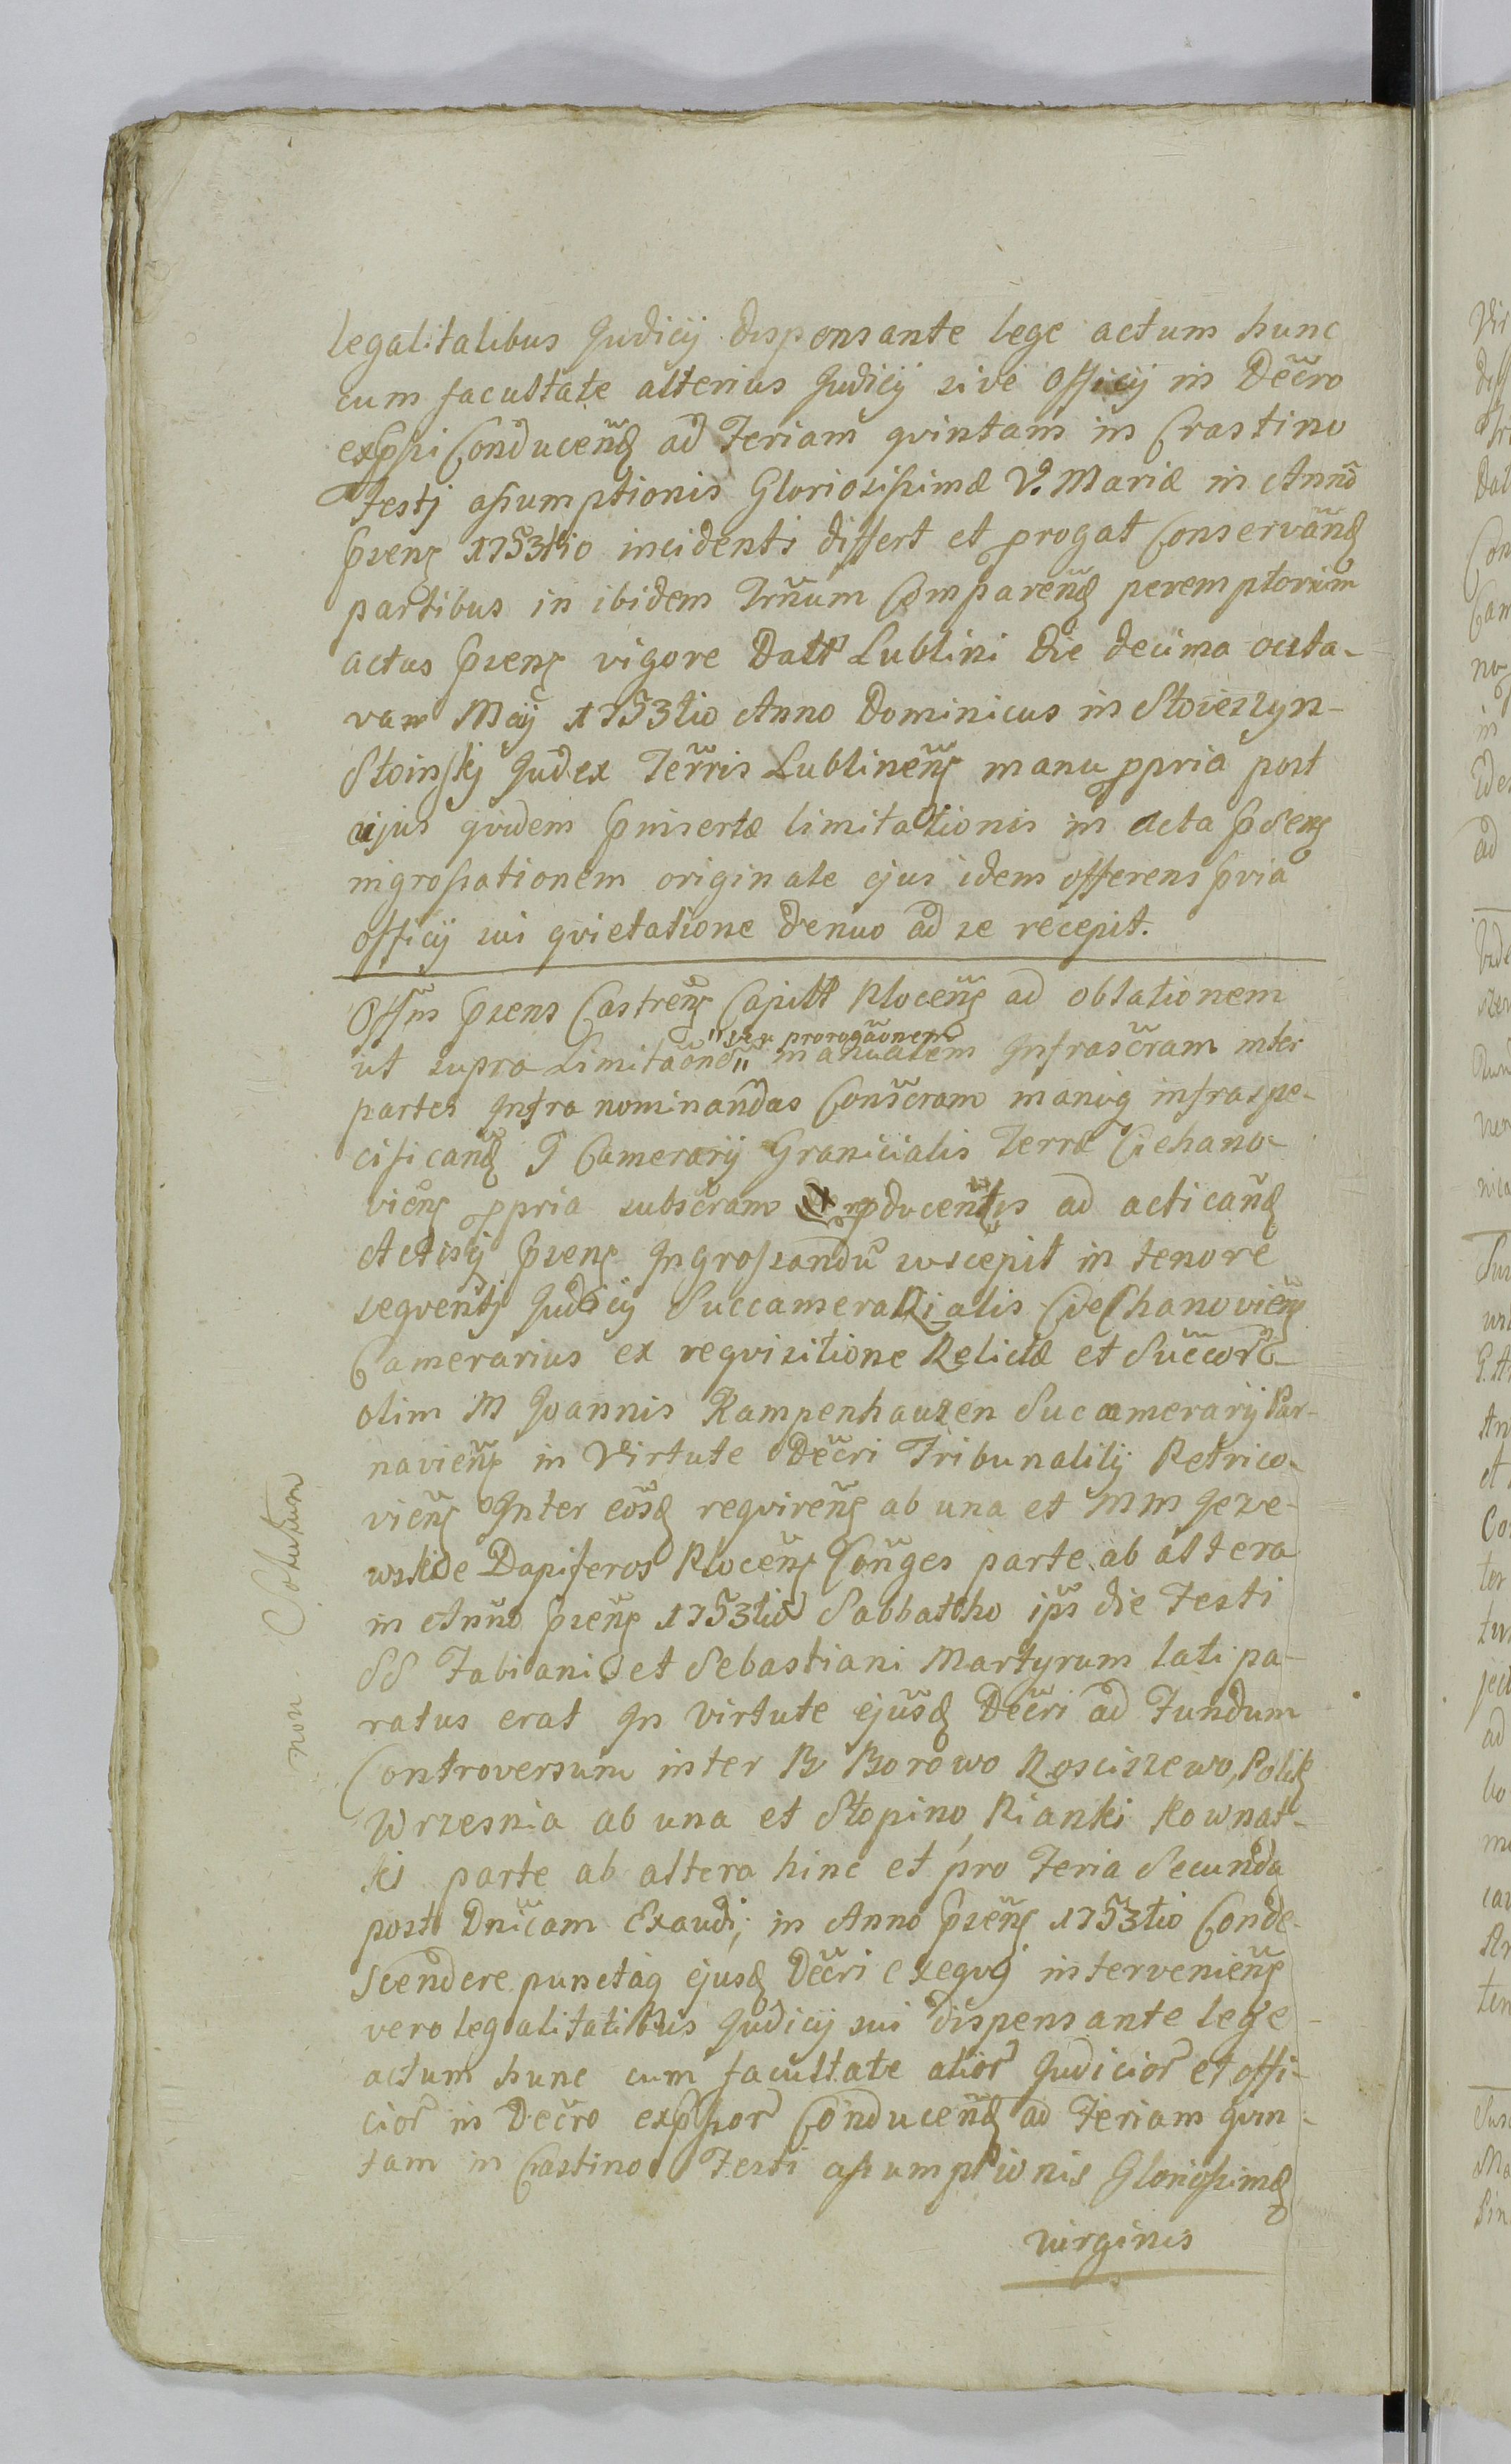 legalitatibus Judicij dispensante lege actum hunc
cum facultate alterius Judicij sive Officij in Decro
exp̃ssi Conducenđ ad Feriam qvintam in Crastino
Festj assumptionis Gloriosissimæ V. Mariæ in Anno
p̃sens 1753tio incidenti differt et progat Conservanđ
partibus in ibidem Trñum Comparenđ peremptorium
actus p̃sens vigore Datt Lublini Die decima octa-
va Maij 1753tio Anno Dominicus in Stoieszyn-
Stoinskj Judex Terris Lublinens manu ppria post
cujus qvidem p̃insertæ limitationis in Acta p̃sens
ingrossationem originale ejus idem offerens p̃via
officij sui qvietatione denuo ad se recepit.
Offm p̃sens Castrens Capitt Plocens ad oblationem
ut supra Limitaōnē " seu prorogãonem
" manualem Infrascrãm inter
partes Infra nominandas Conscrãm manuq infraspe-
cificanđ G Camerarij Granicialis Terræ Ciehano-
viens ppria subscrãm producentis ad acticanđ
Actisq p̃sens Ingrossandũ suscepit in tenore
seqventj Judicij Succamerarialis Ciechanoviens
Camerarius ex reqvisitione Relictæ et Succor
olim M Joannis Kampenhauzen Succamerarij Par-
naviens in Virtute Decri Tribunalitij Petrico-
viens Inter eosđ reqvirens ab una et MM Jeze-
wskie Dapiferos Plocens Conges parte ab altera
in Anno p̃sens 1753tio Sabbatho ips die Festi
SS Fabiani et Sebastiani Martyrum lati pa-
ratus erat In Virtute ejusđ Decri ad Fundum
Controversum inter B Borowo Rosciszewo, Polik
Wrzesnia ab una et Słopino, Pianki Kownat-
ki parte ab altera hinc et pro Feria Secunda
post Dnicam Exaudi; in Anno p̃sens 1753tio Conde-
scendere punctaq ejusđ Decri exeqvi interveniens
vero legalitatibus Judicij sui dispensante lege
actum hunc cum facultate alior Judicior et offi-
cior in Decro exp̃ssor Conducenđ ad Feriam qvin-
tam in Crastino Festi assumptionis Gloriossimæ
virginis
non Solutum